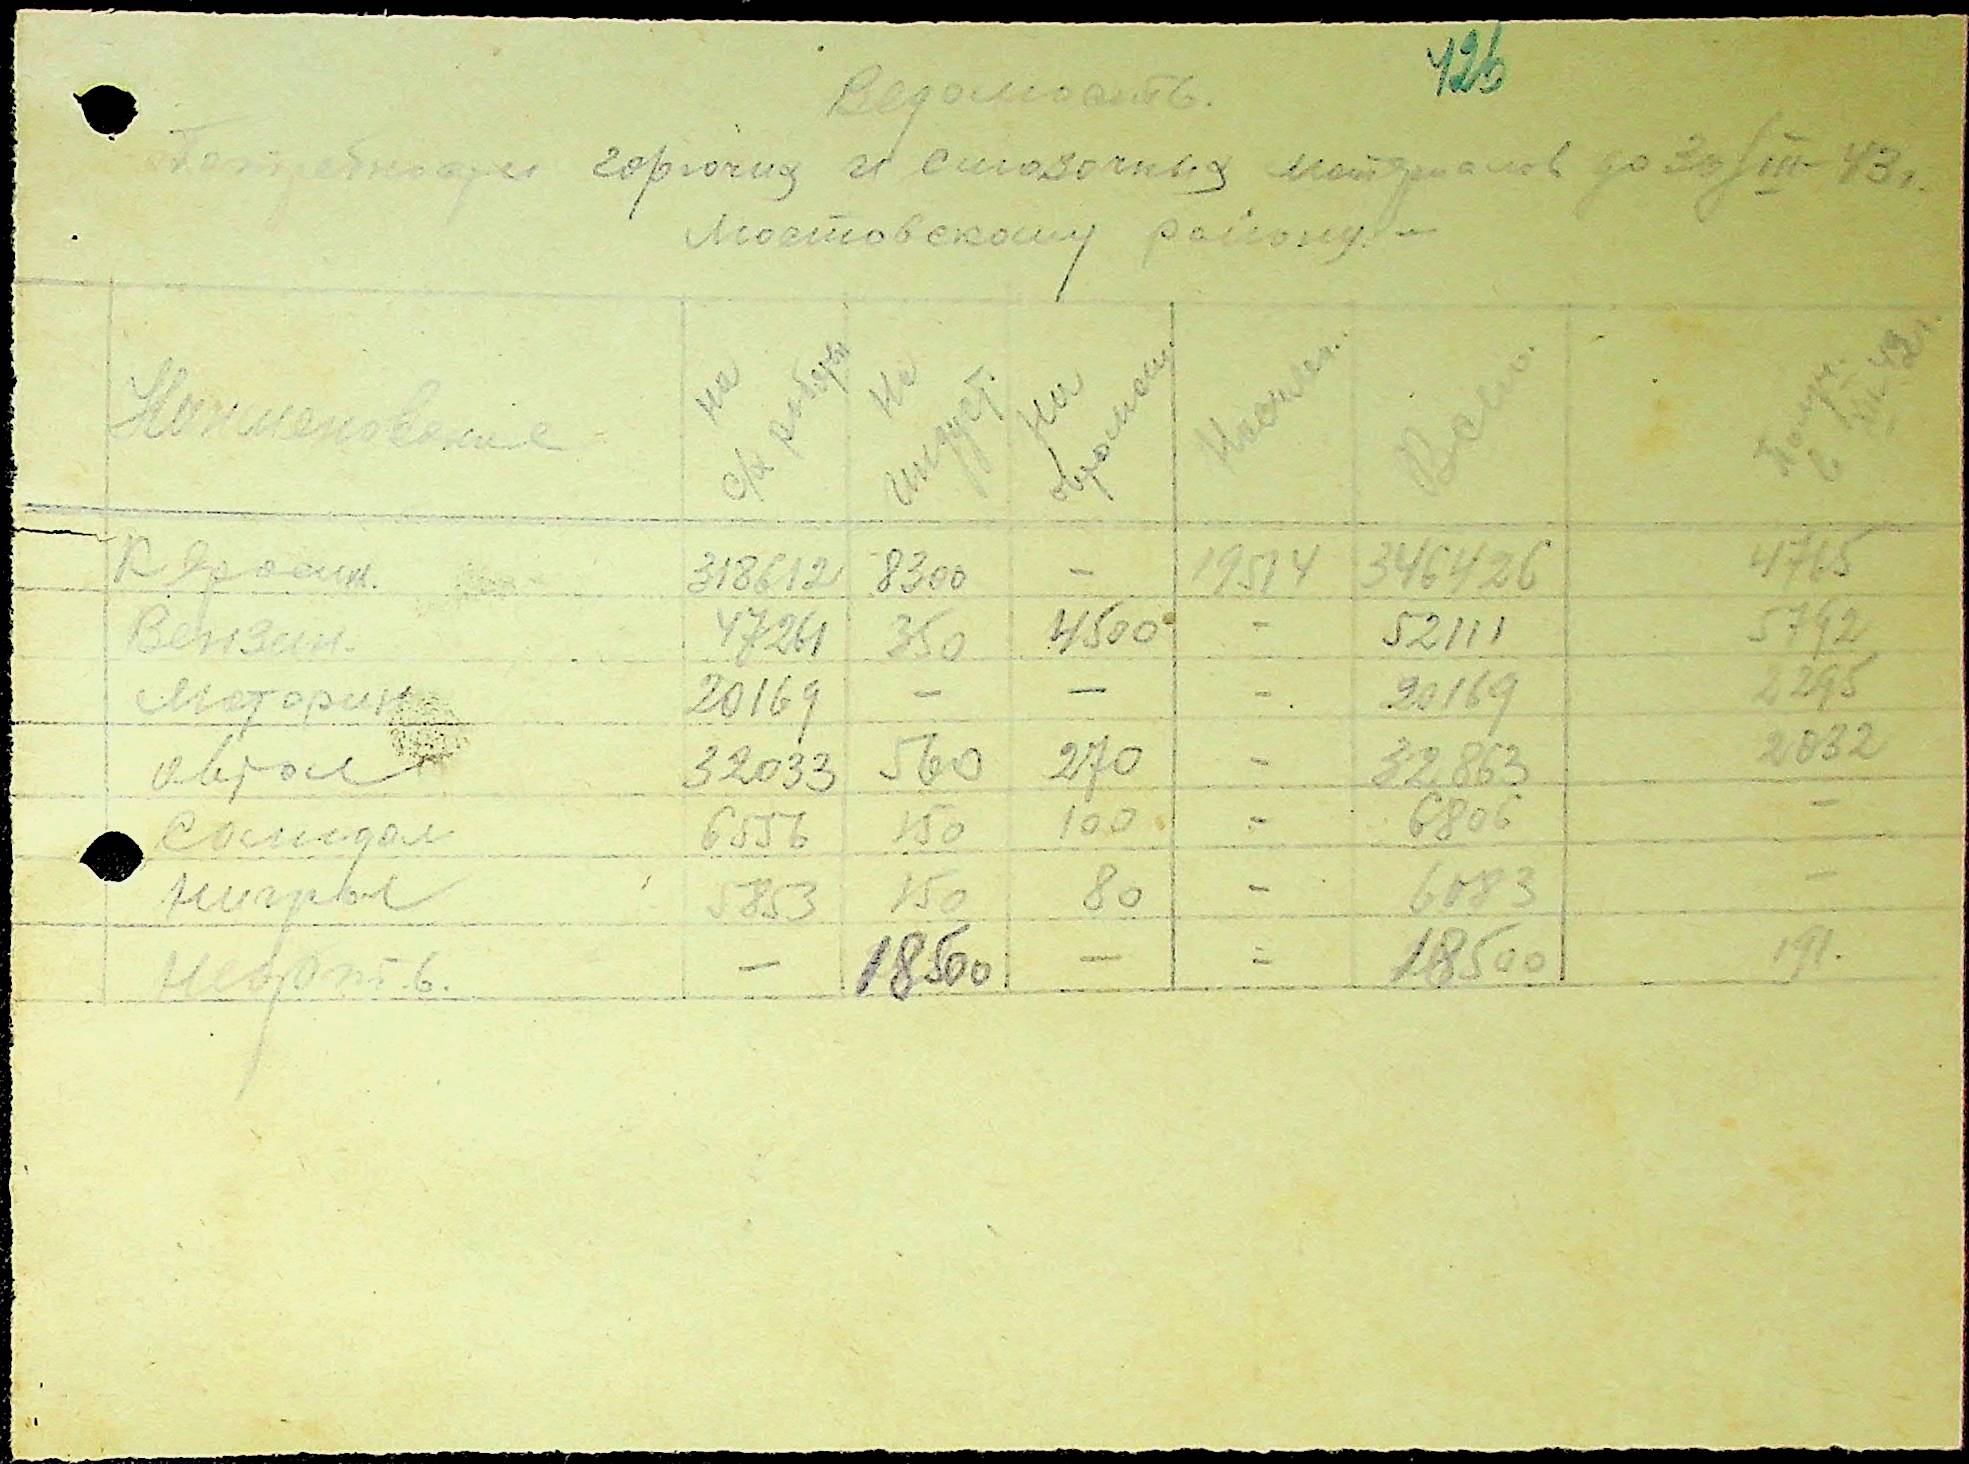 426
Ведомость.
Потребности горючих и смазочных материалов до 30/III 43 г.
Мостовскому району. -
Наименование На с/х работы На индуст. На автомаш. Населен. Всего. Получ. 42 г.
Керосин. 318612 8300 - 19514 346426 4765
Бензин. 47261 350 4500 - 52111 5792
Моторин 20169 - - - 20169 2295
Автол 32033 560 270 - 32863 2032
Солидол 6556 150 100 - 6806 -
Нигрол 5853 150 80 - 6083 -
Нефть. - 18500 - - 18500 191.